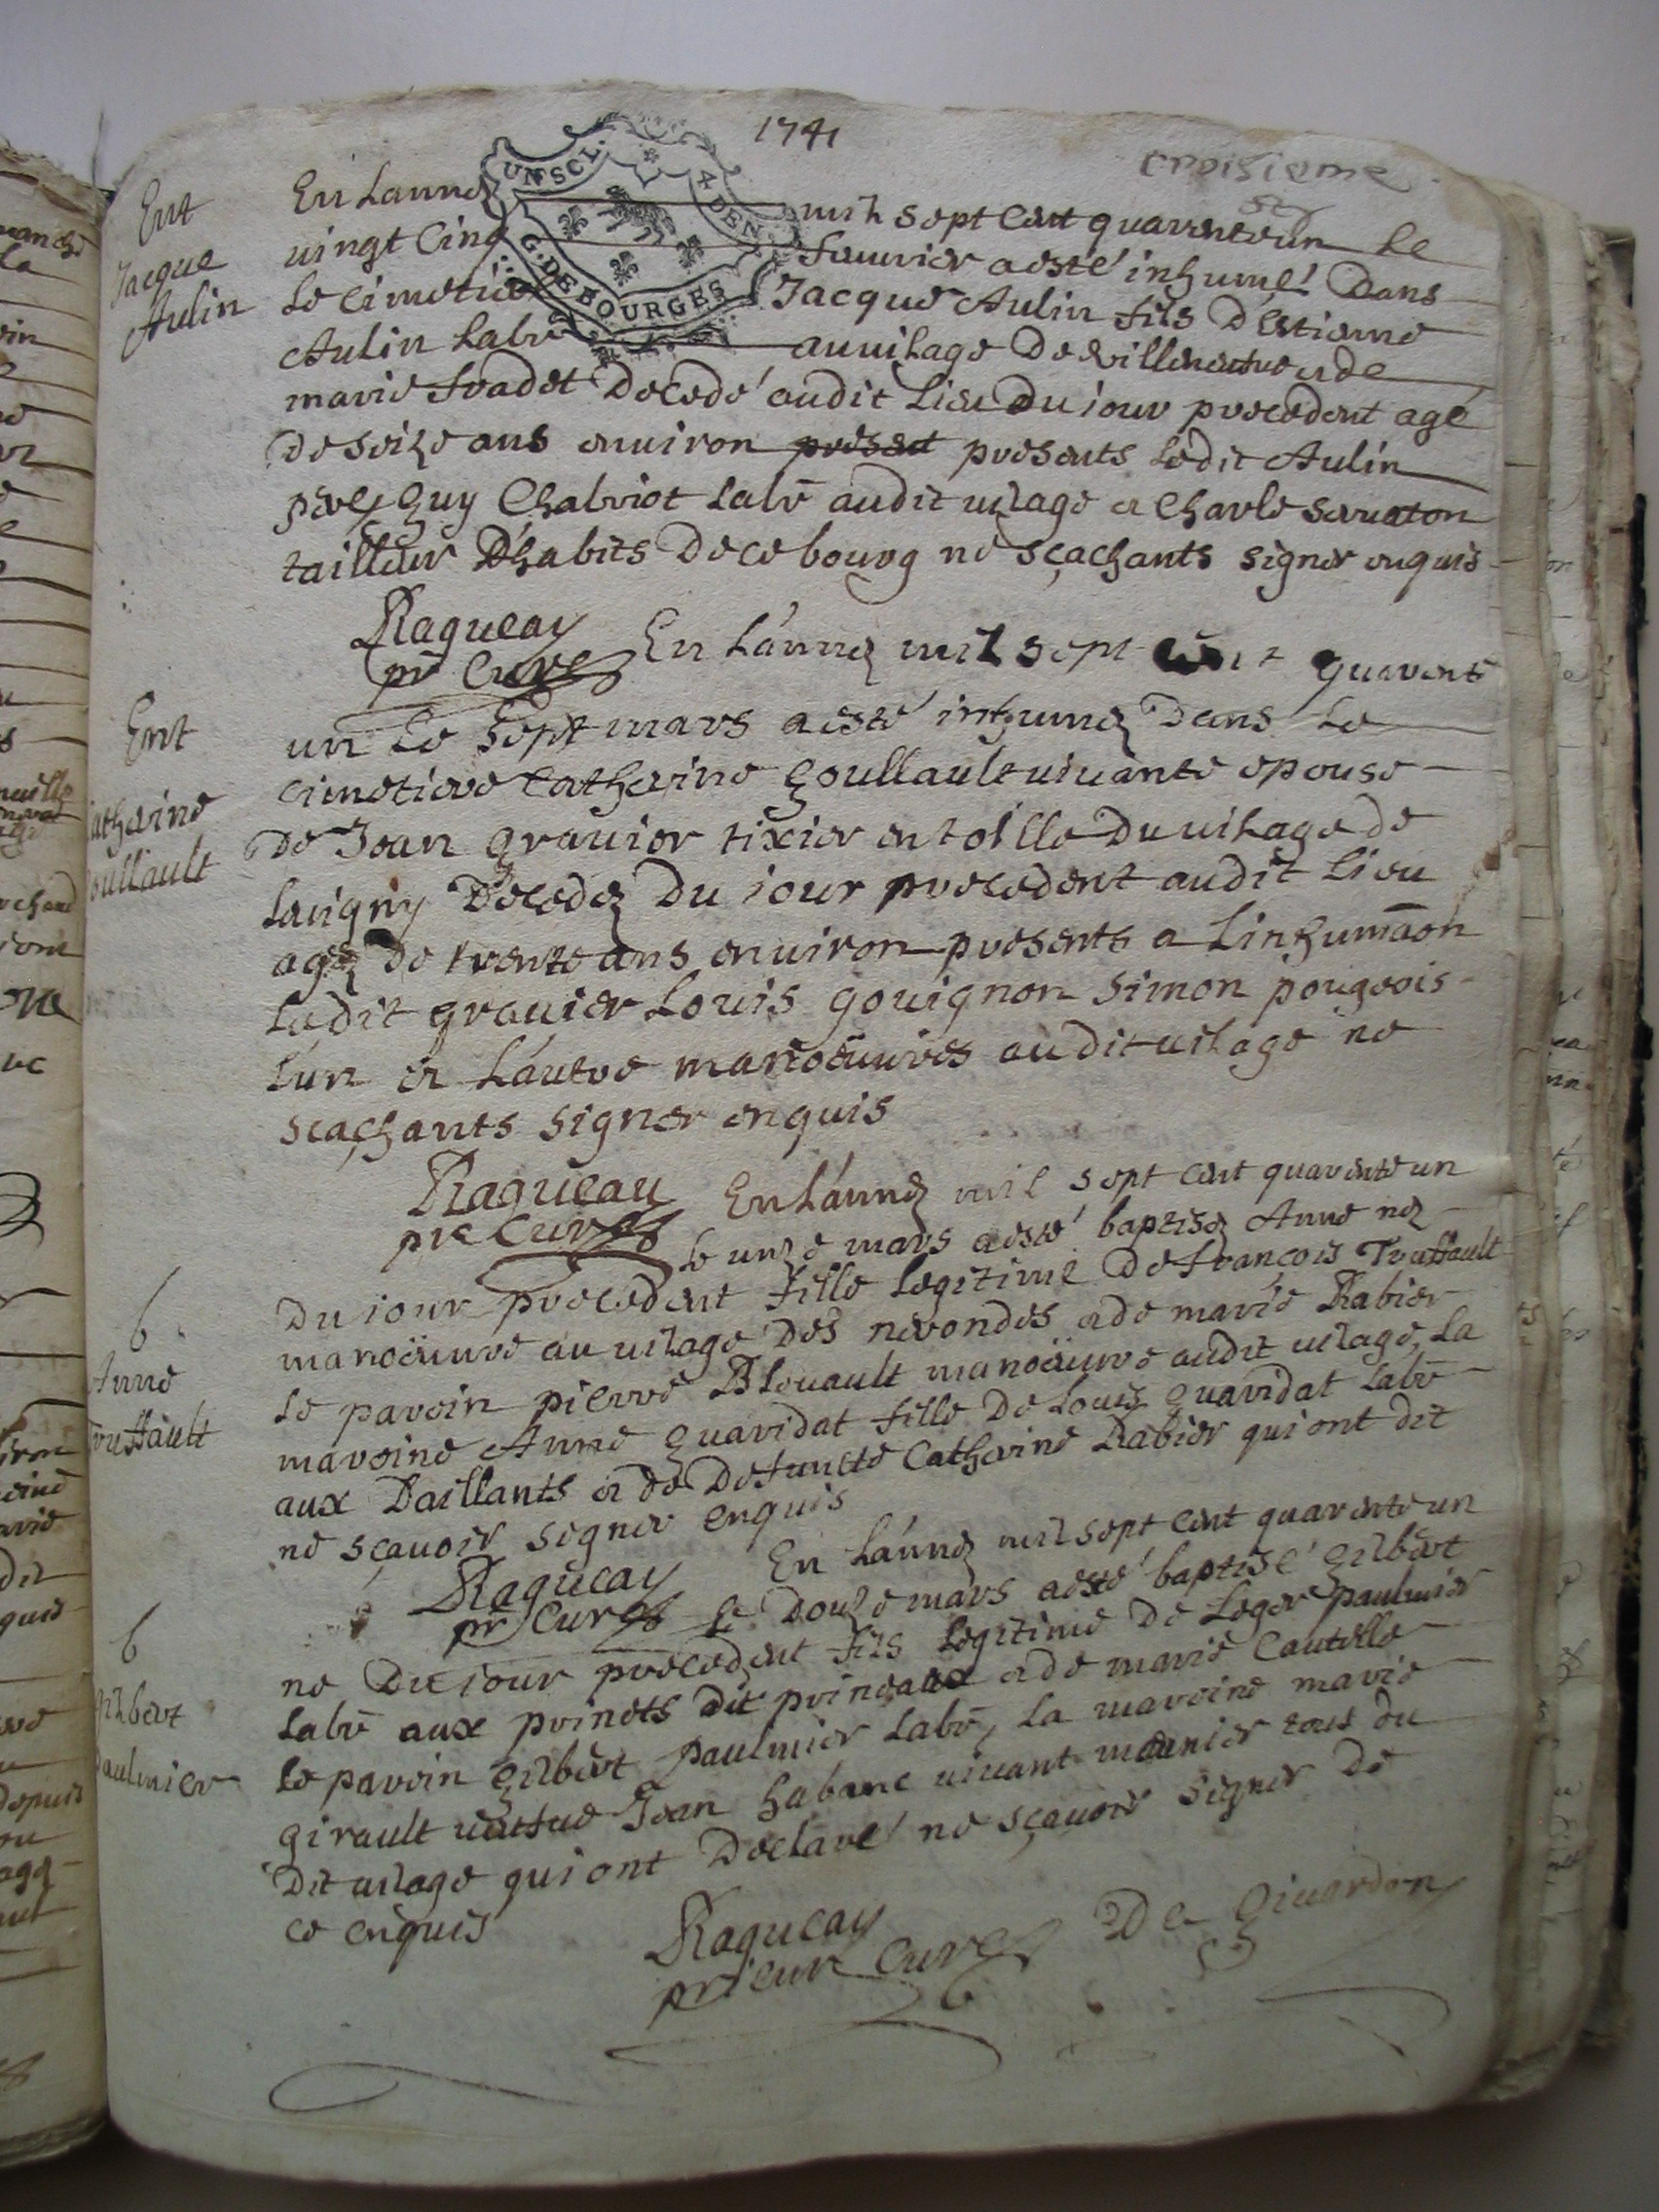 1741
troisieme
Ent
Jacque
Aulin
UN SCL. 4 DEN.
G. DE BOURGES
En Lannéé mil sept cent quarenteun Le
vingt cinq feuurier aesté inhumé Dans
Le cimetiere Jacque Aulin fils D'estienne
Aulin Labr auuilage De villeneufue et de
marie fradet Decedé audit Lieu Du iour precedent agé
De seize ans enuiron present presents Ledit Aulin
pere, Guy Chabriot Labr̄ audit uilage et Charle seruaton
tailleur D'habits De ce bourg ne sçachants signer enquis
Ragueau
pr̄ Curé
Ent
Catherine
Goullault
En L'année mil sept cent quarente
un Le sept mars aesté inhumée Dans Le
cimetiere Catherine Goullault uiuante epouse
De Jean grauier tixier en toille Du uilage de
Lauigny Decedée Du iour precedent audit Lieu
agée De trente ans enuiron presents a L'inhumāon
Ledit grauier Louis gouignon Simon pougeois
L'un et L'autre manoeuures audit uilage ne
scachants signer enquis
Ragueau
pr̄ Curé
6
Anne
Truffault
En L'année mil sept cent quarente un
Le unze mars aesté baptisée Anne née
Du iour precedent fille Legitime De francois Truffault
manoeuure au uilage des nerondes et de marie Rabier
Le parein pierre Blouault manoeuure audit uilage, La
maroine Anne Guaridat fille De Louis Guaridat Labr̄
aux Daillants et de Defuncte Catherine Rabier qui ont dit
ne sçauoir signer enquis
Ragueau
pr̄ Curé
6
Gilbert
Paulmier
En L'année mil sept cent quarente un
Le Douze mars aesté baptisé Gilbert
né Du iour precedent fils Legitime De Leger paulmier
Labr̄ aux prinets dit et de marie Cautelle
Le parein Gilbert paulmier Labr̄, La maroine marie
girault ueufue Jean habanc uiuant meunier tous du
Dit uilage qui ont Declaré ne sçauoir signer De
ce enquis
Ragueau
prieur Curé
De Giuardon